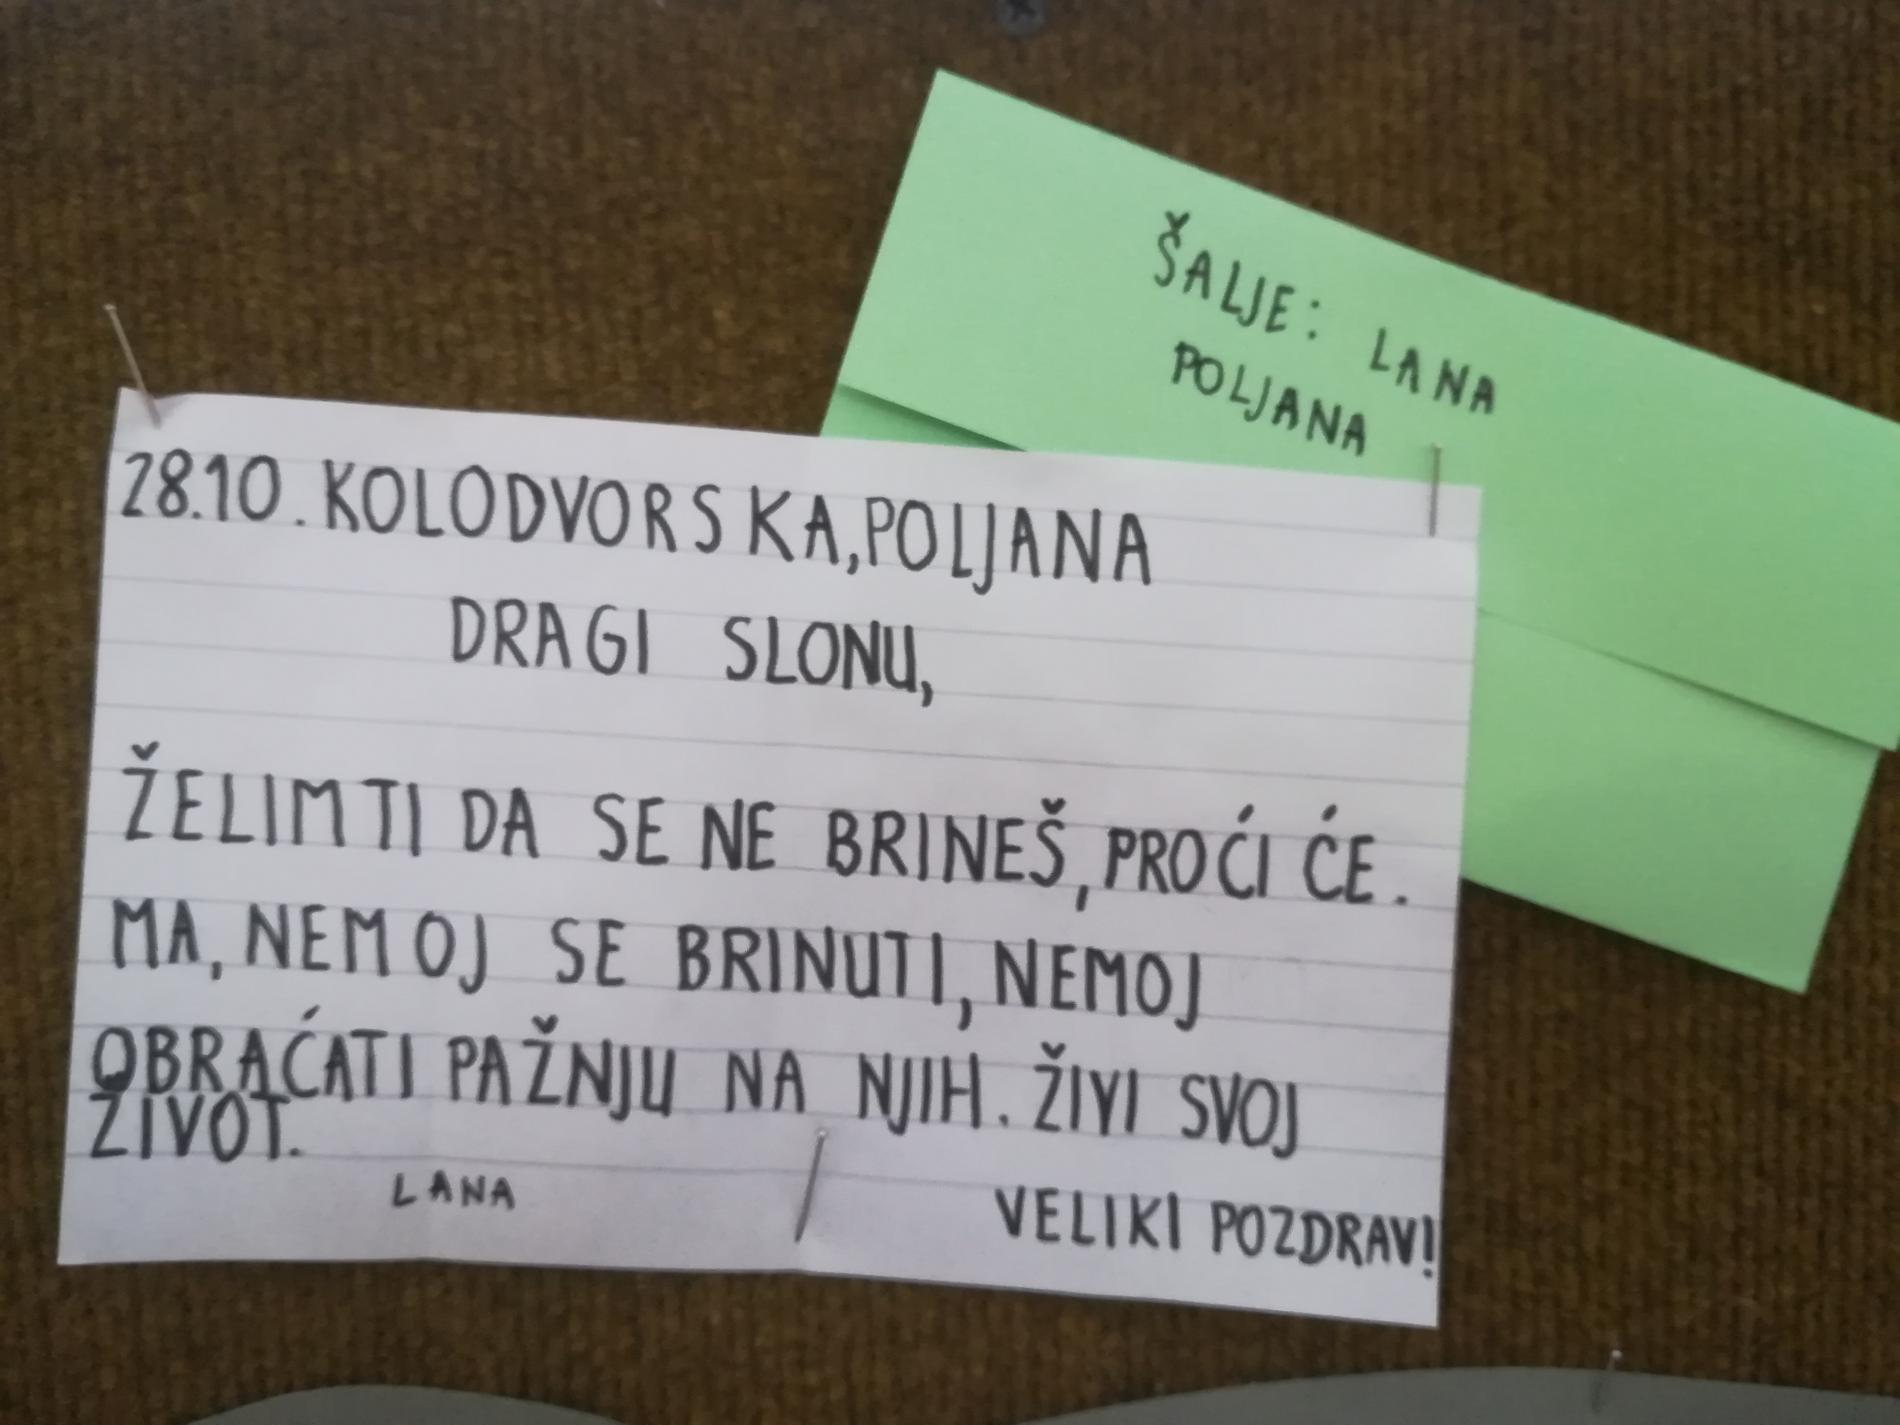 ŠALJE: LANA
POLJANA
28.10. KOLODVORSKA, POLJANA
DRAGI SLONU,
ŽELIM TI DA SE NE BRINEŠ, PROĆI ĆE.
MA, NEMOJ SE BRINUTI, NEMOJ
OBRAĆATI PAŽNJU NA NJIH. ŽIVI SVOJ
ŽIVOT.
LANA
VELIKI POZDRAV!